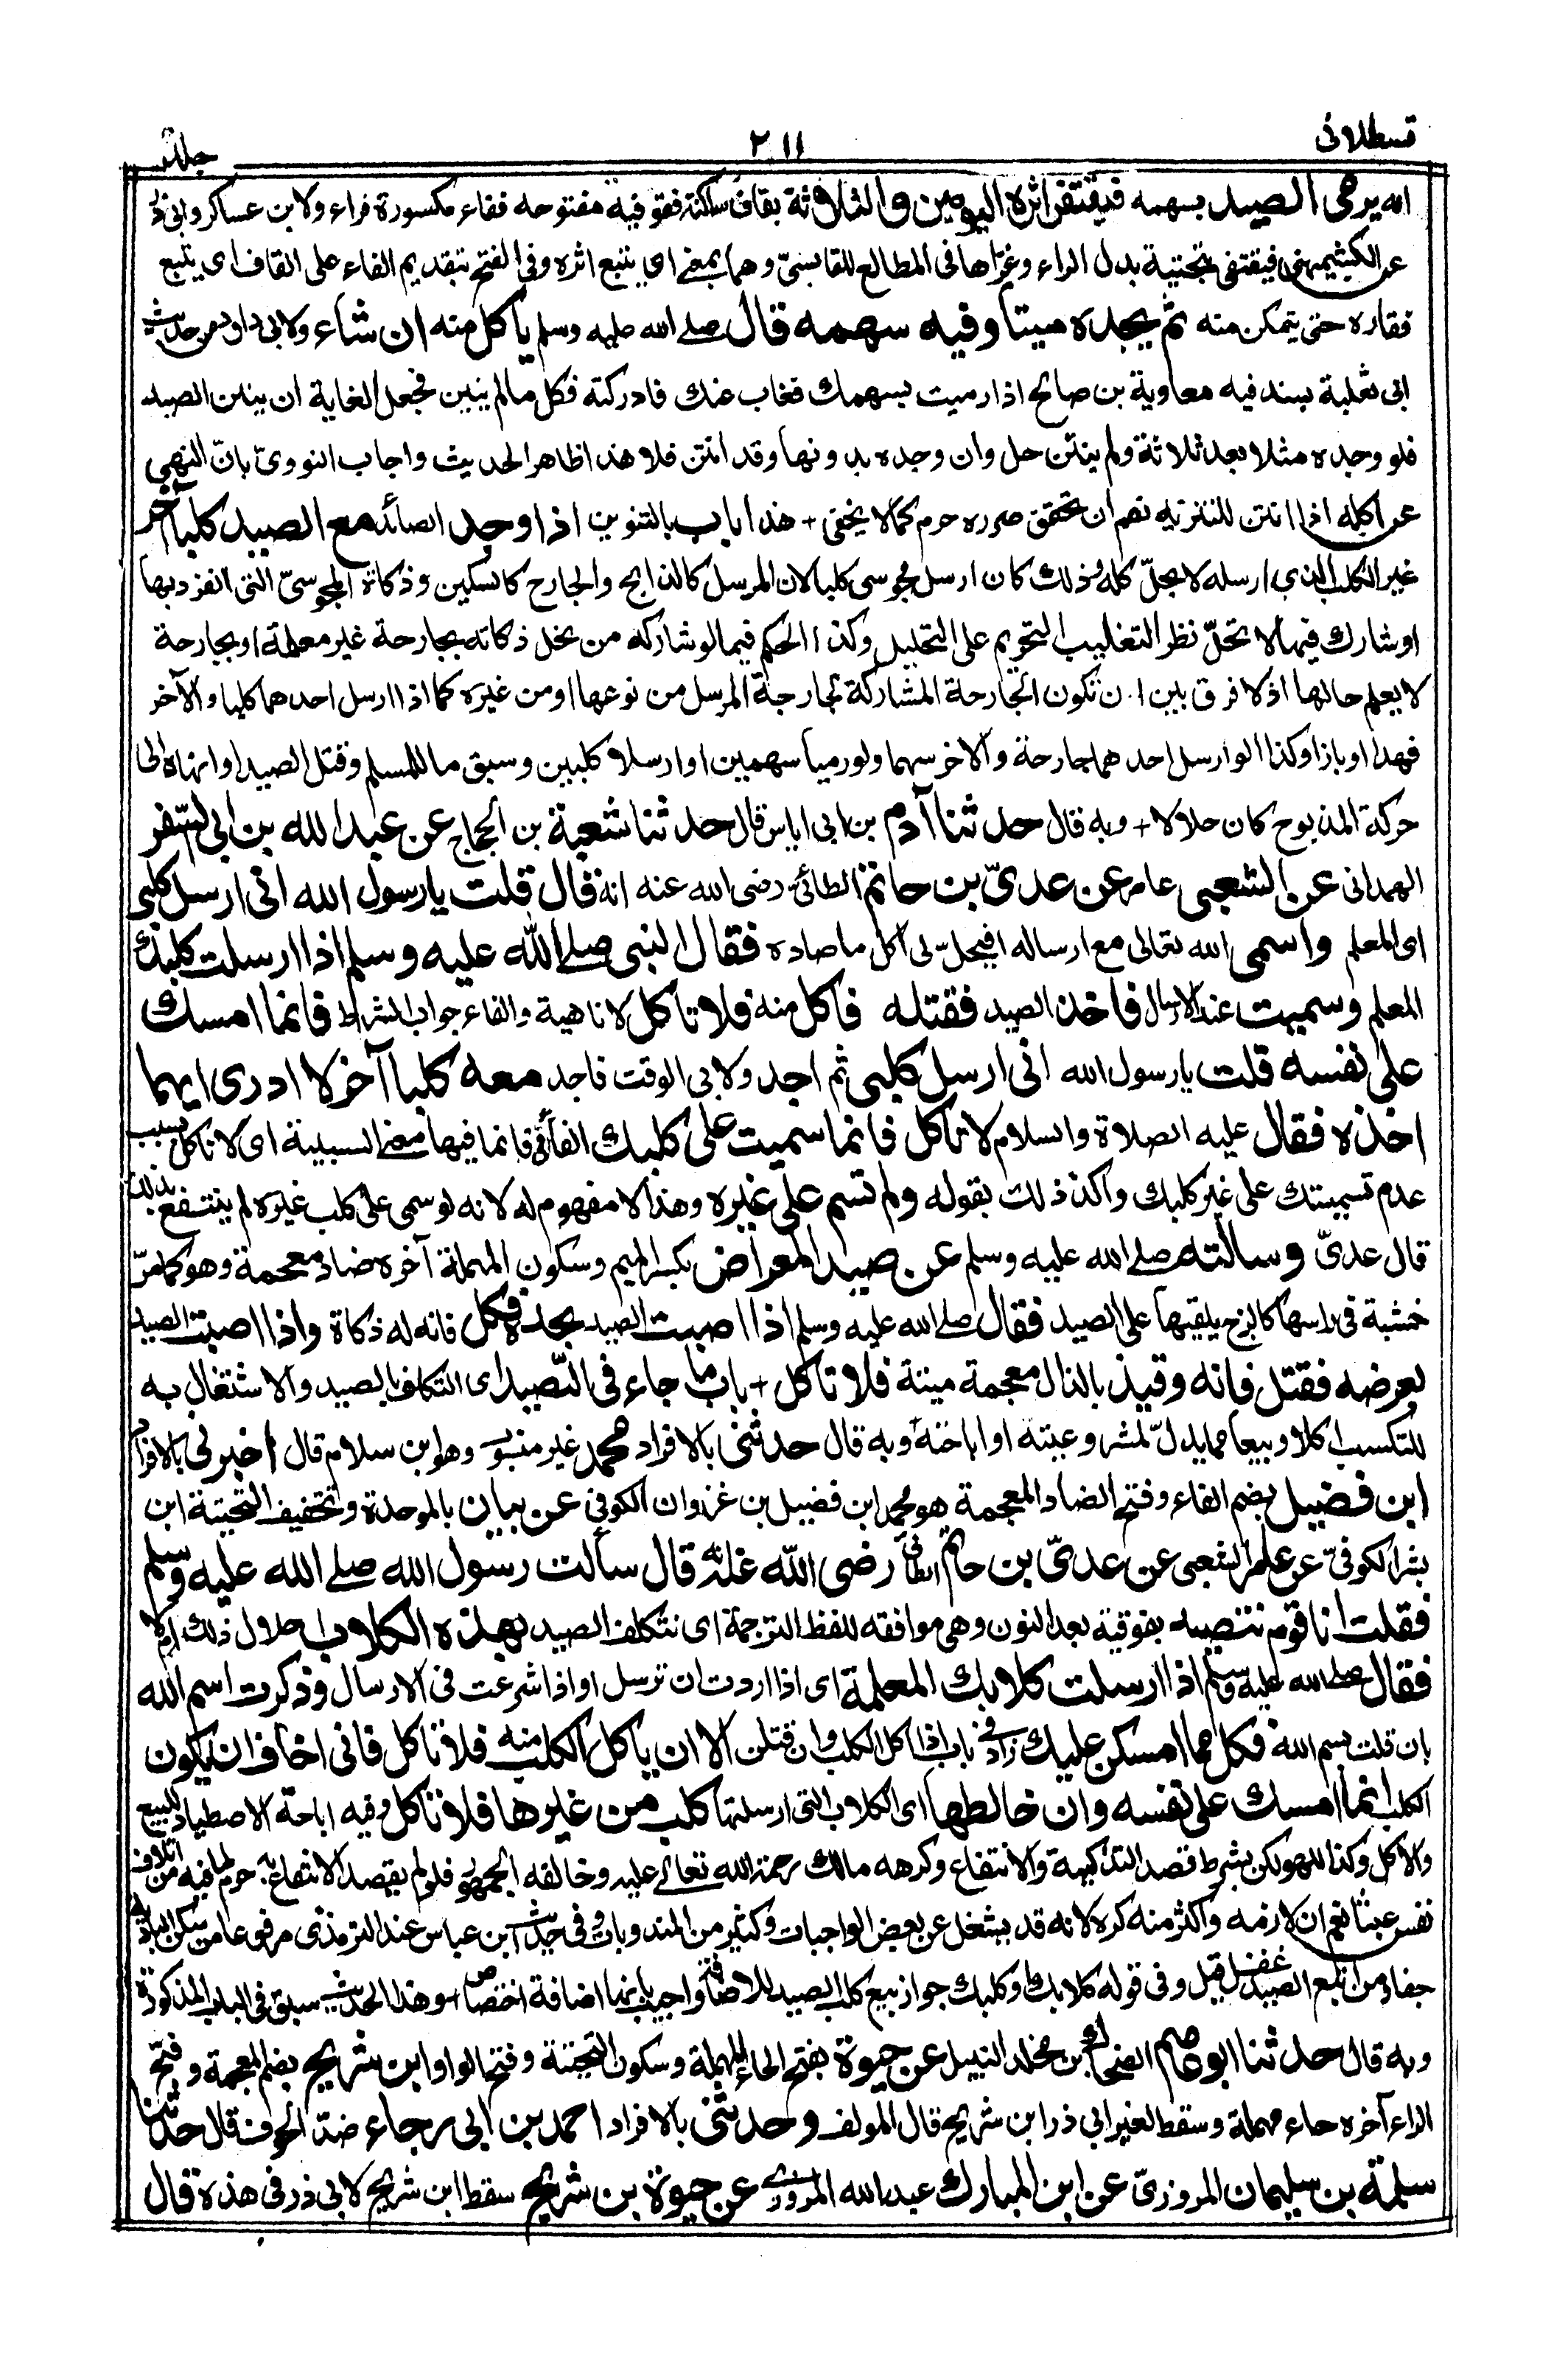 قسطلانی
٢١١
انه يرمى الصيد بسهمه فيقتفر اثره اليومين والثلاثة بقاف ساكنة ففوقية مفتوحه ففاء مكسورة فراء ولابن عساكر وابى ذر
عن الكشميهنى فيقتفى بتحتية بدل الراء وعزاها فى المطالع للقابسىّ وهما بمعنى اى يتبع اثره وفى الفتح بتقديم الفاء على القاف اى يتبع
فقاره حتى يتمكن منه ثم يجده ميتا وفيه سهمه قال صلى الله عليه وسلم ياكل منه ان شاء ولابى داود من حديث
ابى ثعلبة بسند فيه معاوية بن صالح اذا رميت بسهمك فغاب عنك فادركته فكل مالم ينتن فجعل الغاية ان ينتن الصيد
فلو وجده مثلا بعد ثلاثة ولم ينتن حل وان وجده بدونها وقد انتن فلا هذا ظاهر الحديث واجاب النووىّ بانّ النهى
عن اكله اذا انتن للتنزيه نعم ان تحقق ضرره حرم كما لا يخفى + هذا باب بالتنوين اذا وجد الصائد مع الصيد كلبا آخر
غير الكلب الذى ارسله لا يحلّ كله وذلك كان ارسل مجوسى كلبا لان المرسل كالذابح والجارح كالسكين وذكاة المجوسىّ التى انفرد بها
او شارك فيها لا تحلّ نظر التغليب التحريم على التحليل وكذا الحكم فيما لو شاركه من تحل ذكاته بجارحة غير معلمة او بجارحة
لا يعلم حالها اذ لا فرق بين ان تكون الجارحة المشاركة لجارحة المرسل من نوعها او من غيره كما اذا ارسل احدهما كلبا والآخر
فهدا او بازا وكذا لو ارسل احدهما جارحة والآخر سهما ولو رميا سهمين او ارسلا كلبين وسبق ما للمسلم وقتل الصيد او انهاه الى
حركة المذبوح كان حلالا + وبه قال حدثنا آدم بن ابى اياس قال حدثنا شعبة بن الحجاج عن عبد الله بن ابى السفر
الهمدانى عن الشعبى عامر عن عدىّ بن حاتم الطائى رضى الله عنه انه قال قلت يا رسول الله انى ارسل كلبى
اى المعلم واسمى الله تعالى مع ارساله افيحلّ لى اكل ما صاده فقال النبى صلے الله عليه وسلم اذا ارسلت كلبك
المعلم وسميت عند الارسال فاخذ الصيد فقتله فاكل منه فلا تاكل لا ناهية والفاء جواب الشرط فانما امسك
على نفسه قلت يا رسول الله انى ارسل كلبى ثم اجد ولابى الوقت فاجد معه كلبا آخر لا ادرى ايهما
اخذه فقال عليه الصلاة والسلام لا تاكل فانما سميت على كلبك الفاء فى فانما فيها معنى السببية اى لا تاكل بسبب
عدم تسميتك على غير كلبك واكد ذلك بقوله ولم تسم على غيره وهذا لا مفهوم له لانه لو سمى على كلب غيره لم ينتفع بذلك
قال عدىّ وسالته صلے الله عليه وسلم عن صيد المعراض بكسر الميم وسكون المهملة آخره ضاد معجمة وهو كما مرّ
خشبة فى راسها كالزج يلقيها على الصيد فقال صلے الله عليه وسلم اذا اصبت الصيد بحده فكل فانه له ذكاة واذا اصبت الصيد
بعرضه فقتل فانه وقيذ بالذال معجمة ميتة فلا تاكل + باب ما جاء فى التصيد اى التكلف بالصيد والاشتغال به
للتكسب اكلا وبيعا مما يدلّ لمشروعيته او اباحته وبه قال حدثنى بالافراد محمد غير منسوب وهو ابن سلام قال اخبرنى بالافراد
ابن فضيل بضم الفاء وفتح الضاد المعجمة هو محمد ابن فضيل بن غزوان الكوفى عن بيان بالموحدة وتخفيف التحتية ابن
بشر الكوفىّ عن عامر الشعبى عن عدىّ بن حاتم الطائى رضى الله عنه قال سألت رسول الله صلے الله عليه وسلم
فقلت انا قوم نتصيد بفوقية بعد النون وهى موافقه للفظ الترجمة اى نتكلف الصيد بهذه الكلاب احلال ذلك ام لا
فقال صلے الله عليه وسلم اذا ارسلت كلابك المعلمة اى اذا اردت ان ترسل او اذا شرعت فى الارسال وذكرت اسم الله
بان قلت بسم الله فكل مما امسكن عليك زاد فى باب اذا اكل الكلب وان قتلن الا ان ياكل الكلب منه فلا تاكل فانى اخاف ان يكون
الكلب انما امسك على نفسه وان خالطها اى الكلاب التى ارسلتها كلب من غيرها فلا تاكل وفيه اباحة الاصطياد للبيع
والاكل وكذا اللهو لكن بشرط قصد التذكية والانتفاع وكرهه مالك رحمة الله تعالے عليه وخالفه الجمهور فلو لم يقصد الانتفاع به حرم لما فيه من اتلاف
نفس عبثا نعم ان لازمه واكثر منه كره لانه قد يشغل عن بعض الواجبات وكثير من المندوبات وفى حديث ابن عباس عند الترمذى مرفوعا من سكن البادية
جفا ومن اتبع الصيد غفل قيل وفى قوله كلابك او كلبك جواز بيع كلب الصيد للاضافة واجيب بانها اضافة اختصاص + وهذا الحديث سبق فى الباب المذكور
وبه قال حدثنا ابو عاصم الضحاك بن مخلد النبيل عن حيوة بفتح الحاء المهملة وسكون التحتية وفتح الواو ابن شريح بضم المعجمة وفتح
الراء آخره حاء مهملة وسقط لغير ابى ذر ابن شريح قال المولف وحدثنى بالافراد احمد بن ابى رجاء ضدّ الخوف قال حدثنا
سلمة بن سليمان المروزىّ عن ابن المبارك عبد الله المروزى عن حيوة بن شريح سقط ابن شريح لابى ذر فى هذه قال